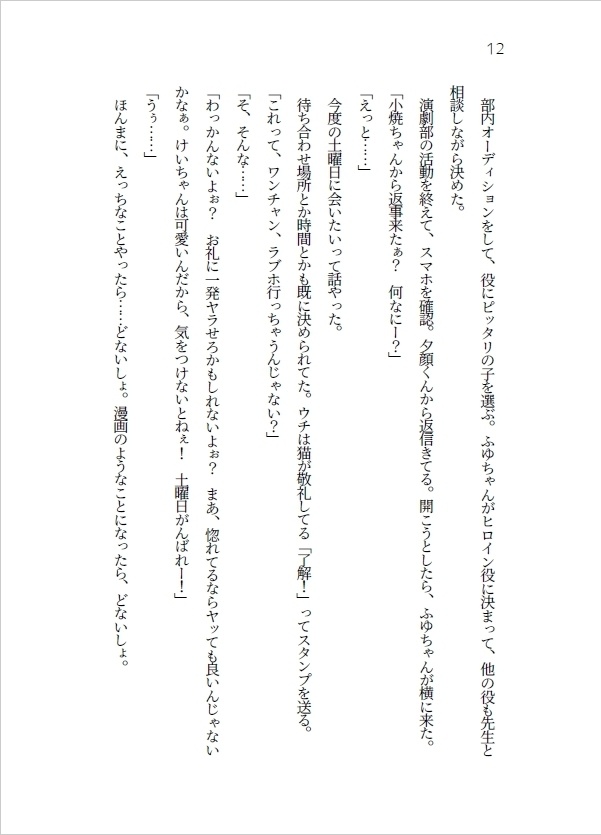 12
　部内オーディションをして、役にピッタリの子を選ぶ。ふゆちゃんがヒロイン役に決まって、他の役も先生と
相談しながら決めた。
　演劇部の活動を終えて、スマホを確認。夕顔くんから返信きてる。開こうとしたら、ふゆちゃんが横に来た。
「小焼ちゃんから返事来たぁ？　何なにー？」
「えっと……」
　今度の土曜日に会いたいって話やった。
　待ち合わせ場所とか時間とかも既に決められてた。ウチは猫が敬礼してる「了解！」ってスタンプを送る。
「これって、ワンチャン、ラブホ行っちゃうんじゃない？」
「そ、そんな……」
「わっかんないよぉ？　お礼に一発ヤラせろかもしれないよぉ？　まあ、惚れてるならヤッても良いんじゃない
かなぁ。けいちゃんは可愛いんだから、気をつけないとねぇ！　土曜日がんばれー！」
「うぅ……」
　ほんまに、えっちなことやったら……どないしょ。漫画のようなことになったら、どないしょ。